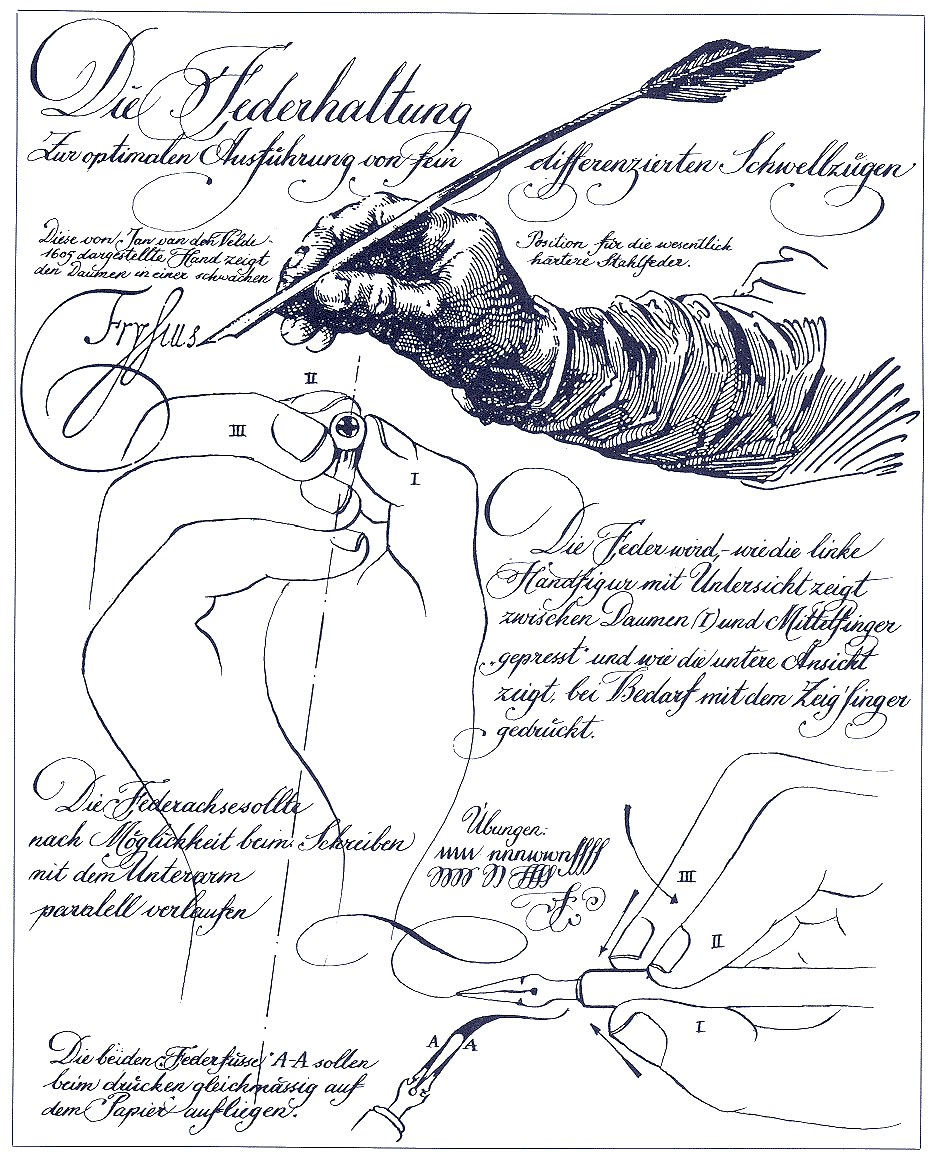 Die Federhaltung
Zur optimalen Ausführung von fein differenzierten Schwellzügen
Diese von Jan van den Velde
1605 dargestellte Hand zeigt
den Daumen in einer schwachen
Position für die wesentlich
härtere Stahlfeder.
Frysius
II
III
I
Die Feder wird,- wie die linke
Handfigur mit Untersicht zeigt
zwischen Daumen (I) und Mittelfinger
„gepresst" und wie die untere Ansicht
zeigt, bei Bedarf mit dem Zeig'finger
gedrückt.
Die Federachse sollte
nach Möglichkeit beim Schreiben
mit dem Unterarm
paralell verlaufen
Übungen:
III
II
I
A A
Die beiden „Federfüsse" A-A sollen
beim drücken gleichmässig auf
dem Papier aufliegen.